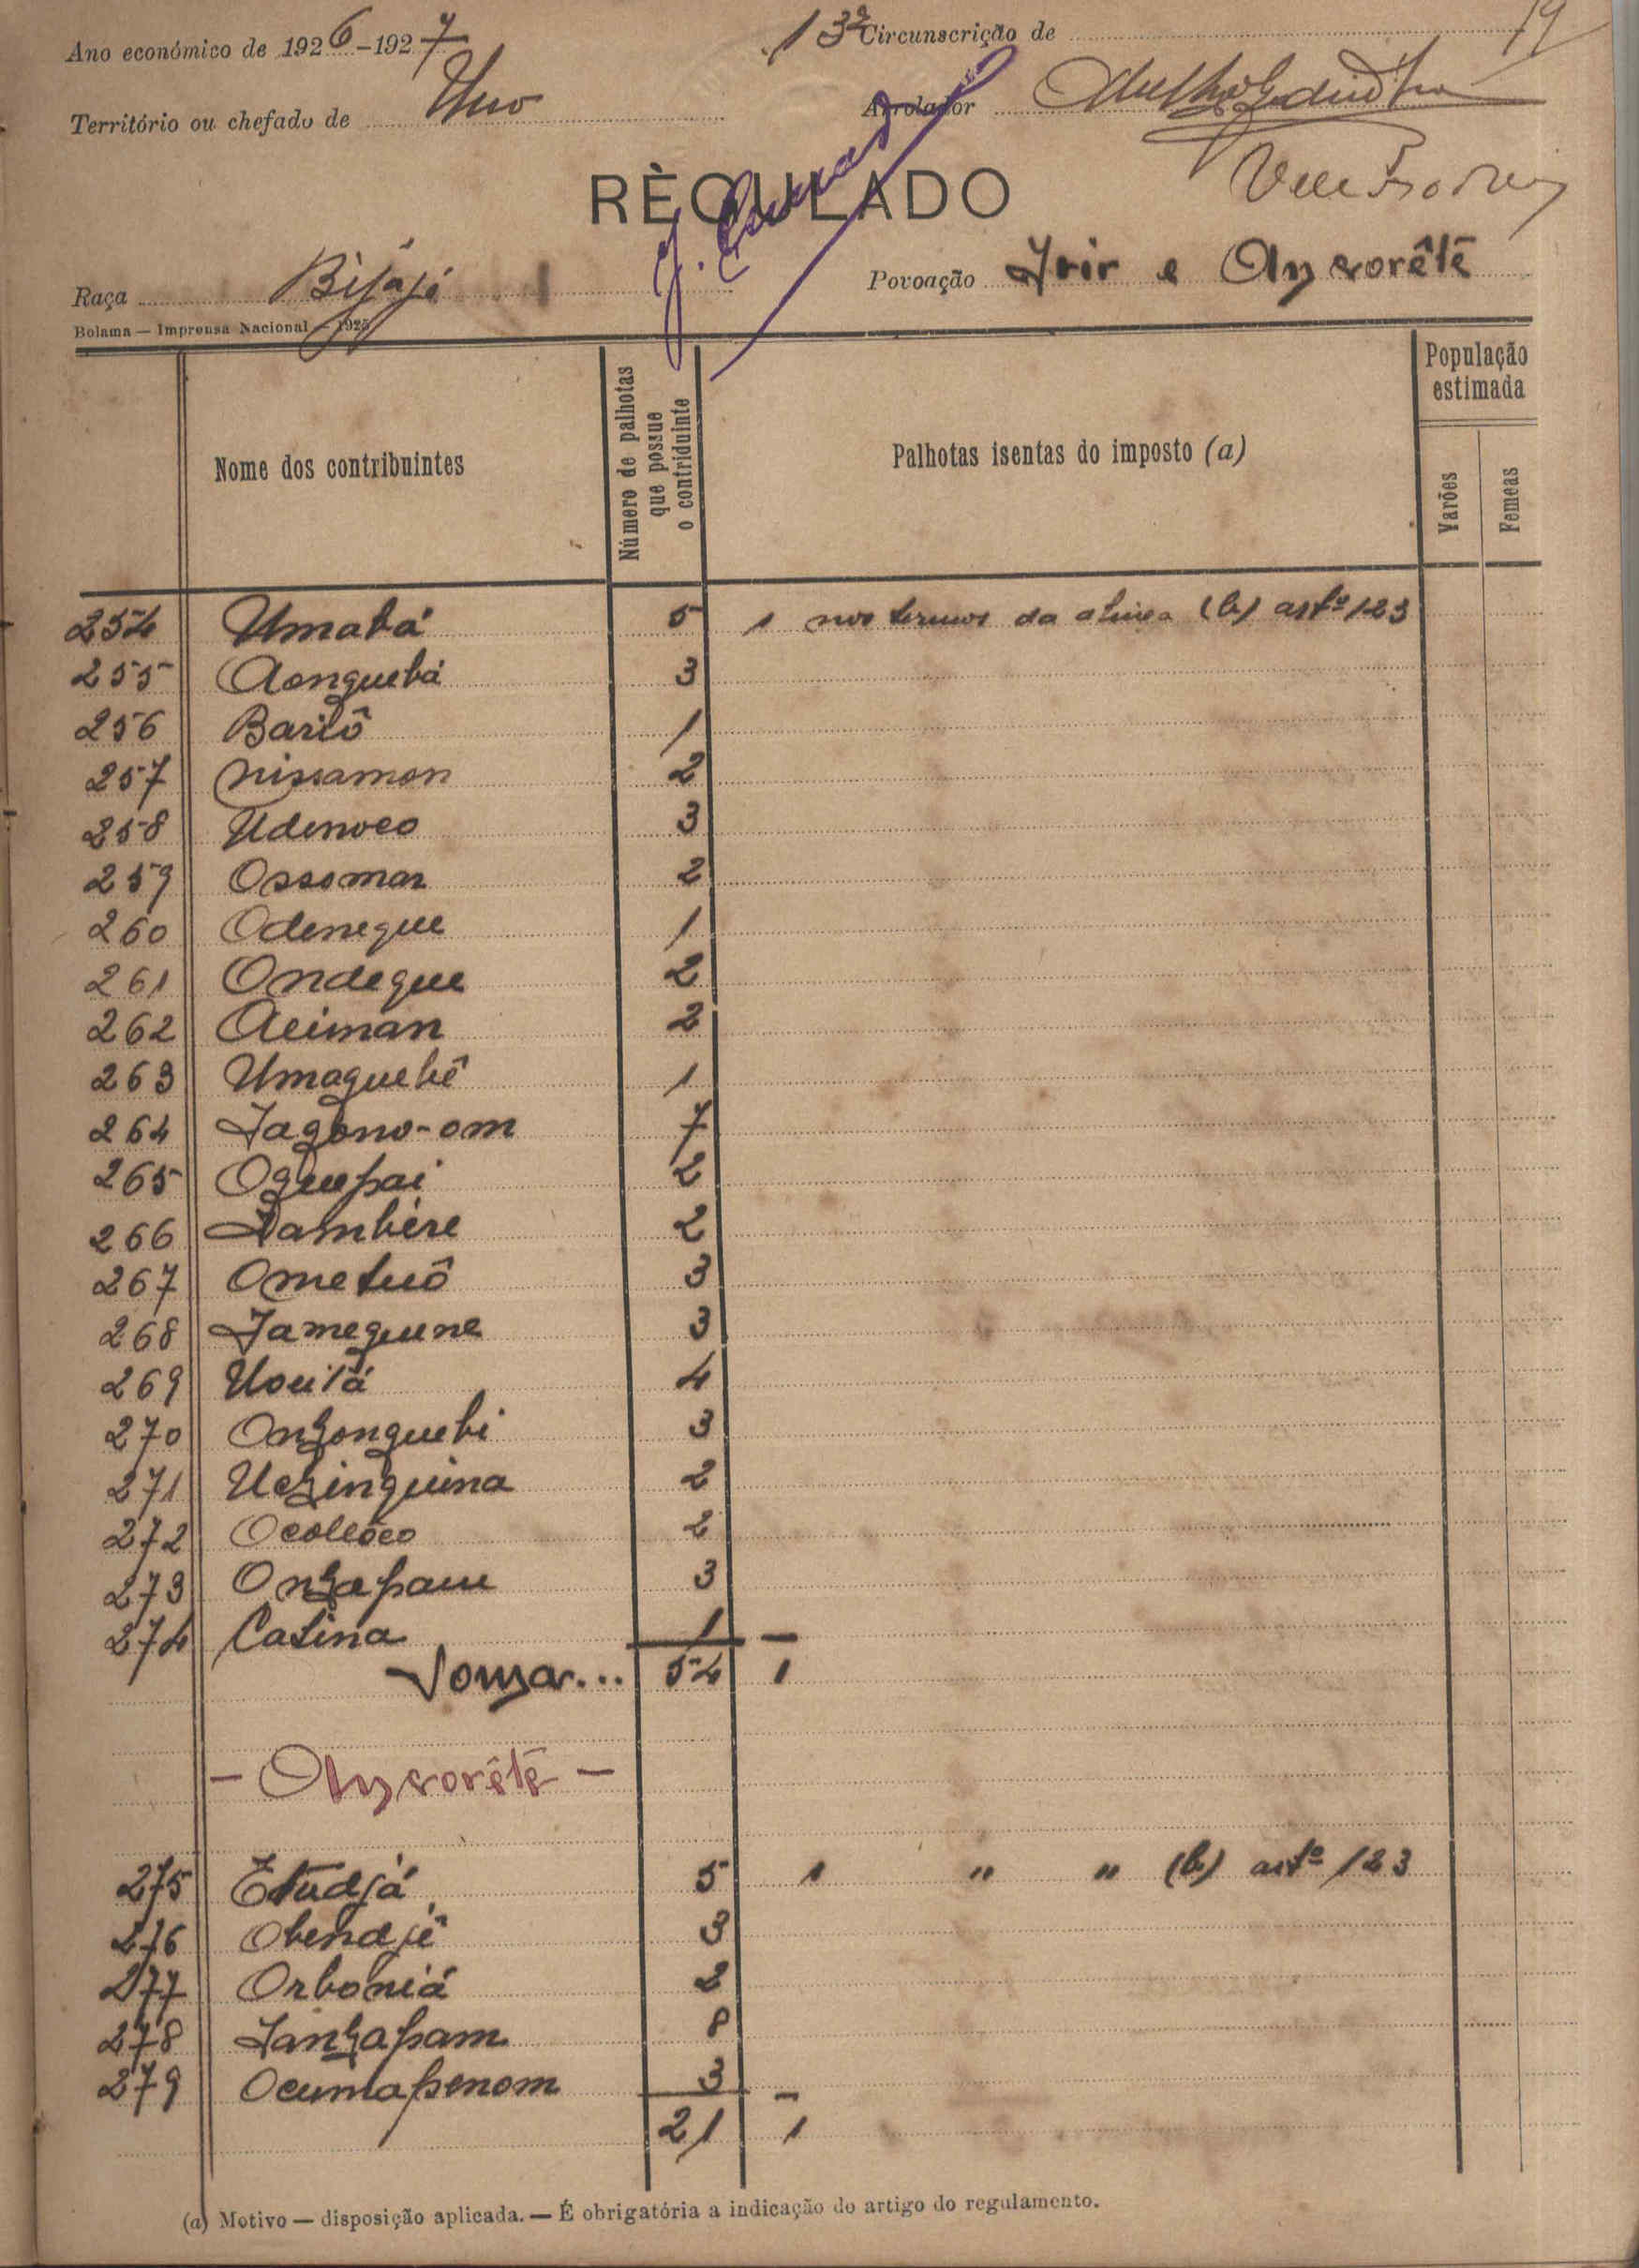 19
Ano económico de 1926-1927
13ª Circunscrição de
Território ou chefado de Uno
Arrolador
RÈGULADO
Raça Bijajó 1
Povoação Irir e Anzorêtê
Bolama — Imprensa Nacional — 1925
Nome dos contribuintes
Número de palhotas que possue o contriduinte
Palhotas isentas do imposto (a)
População estimada
Varões
Femeas
254 Umabá 5 1 nos termos da alinea (b) artº 123
255 Aonguebá 3
256 Barilô 1
257 Nissamon 2
258 Udenoco 3
259 Ossomar 2
260 Odeneque 1
261 Ondeque 2
262 Aciman 2
263 Umaguebê 1
264 Jagono-om 7
265 Oguepai 2
266 Dambére 2
267 Ometuô 3
268 Jameguene 3
269 Uouitá 4
270 Onzonguebi 3
271 Uezinguina 2
272 2
273 Onzapaue 3
274 Catina 1 —
Somar... 54 1
- Anzorêtê -
275 Etudjá 5 1 " " (b) artº 123
276 Obendjê 3
277 Orboniá 2
278 Janzapam 8
279 Ocumapenom 3 —
21 1
(a) Motivo — disposição aplicada. — É obrigatória a indicação do artigo do regulamento.